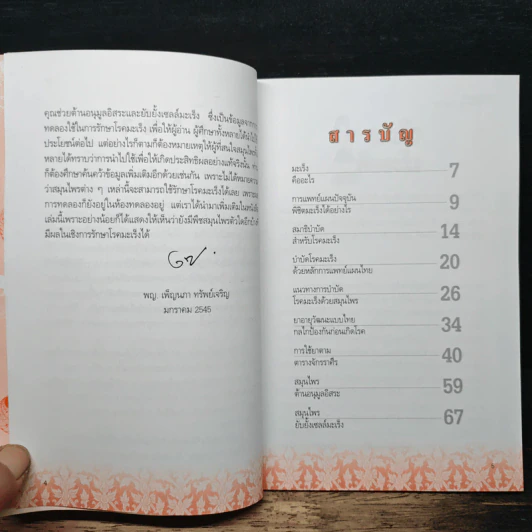 คุณช่วยต้านอนุมูลอิสระและยับยั้งเซลล์มะเร็ง ซึ่งเป็นข้อมูลจาก
ทดลองใช้ในการรักษาโรคมะเร็ง เพื่อให้ผู้อ่าน ผู้ศึกษาทั้งหลายได้
ประโยชน์ต่อไป แต่อย่างไรก็ตามก็ต้องหมายเหตุให้ผู้ที่สนใจสมุนไพร
หลายได้ทราบว่าการนำไปใช้เพื่อให้เกิดประสิทธิผลอย่างแท้จริงนั้น
ก็ต้องศึกษาค้นคว้าข้อมูลเพิ่มเติมอีกด้วยเช่นกัน เพราะไม่ได้หมายความ
ว่าสมุนไพรต่าง ๆ เหล่านี้จะสามารถใช้รักษาโรคมะเร็งได้เลย เพราะ
การทดลองก็ยังอยู่ในห้องทดลองอยู่ แต่เราได้นำมาเพิ่มเติมในหนังสือ
เล่มนี้เพราะอย่างน้อยก็ได้แสดงให้เห็นว่ายังมีพืชสมุนไพรตัวใดอีกบ้าง
มีผลในเชิงการรักษาโรคมะเร็งได้
พญ. เพ็ญนภา ทรัพย์เจริญ
มกราคม 2545
สารบัญ
มะเร็ง
คืออะไร 7
การแพทย์แผนปัจจุบัน
พิชิตมะเร็งได้อย่างไร 9
สมาธิบำบัด
สำหรับโรคมะเร็ง 14
บำบัดโรคมะเร็ง
ด้วยหลักการแพทย์แผนไทย 20
แนวทางการบำบัด
โรคมะเร็งด้วยสมุนไพร 26
ยาอายุวัฒนะแบบไทย
กลไกป้องกันก่อนเกิดโรค 34
การใช้ยาตาม
ตารางจักรราศีร 40
สมุนไพร
ต้านอนุมูลอิสระ 59
สมุนไพร
ยับยั้งเซลล์มะเร็ง 67